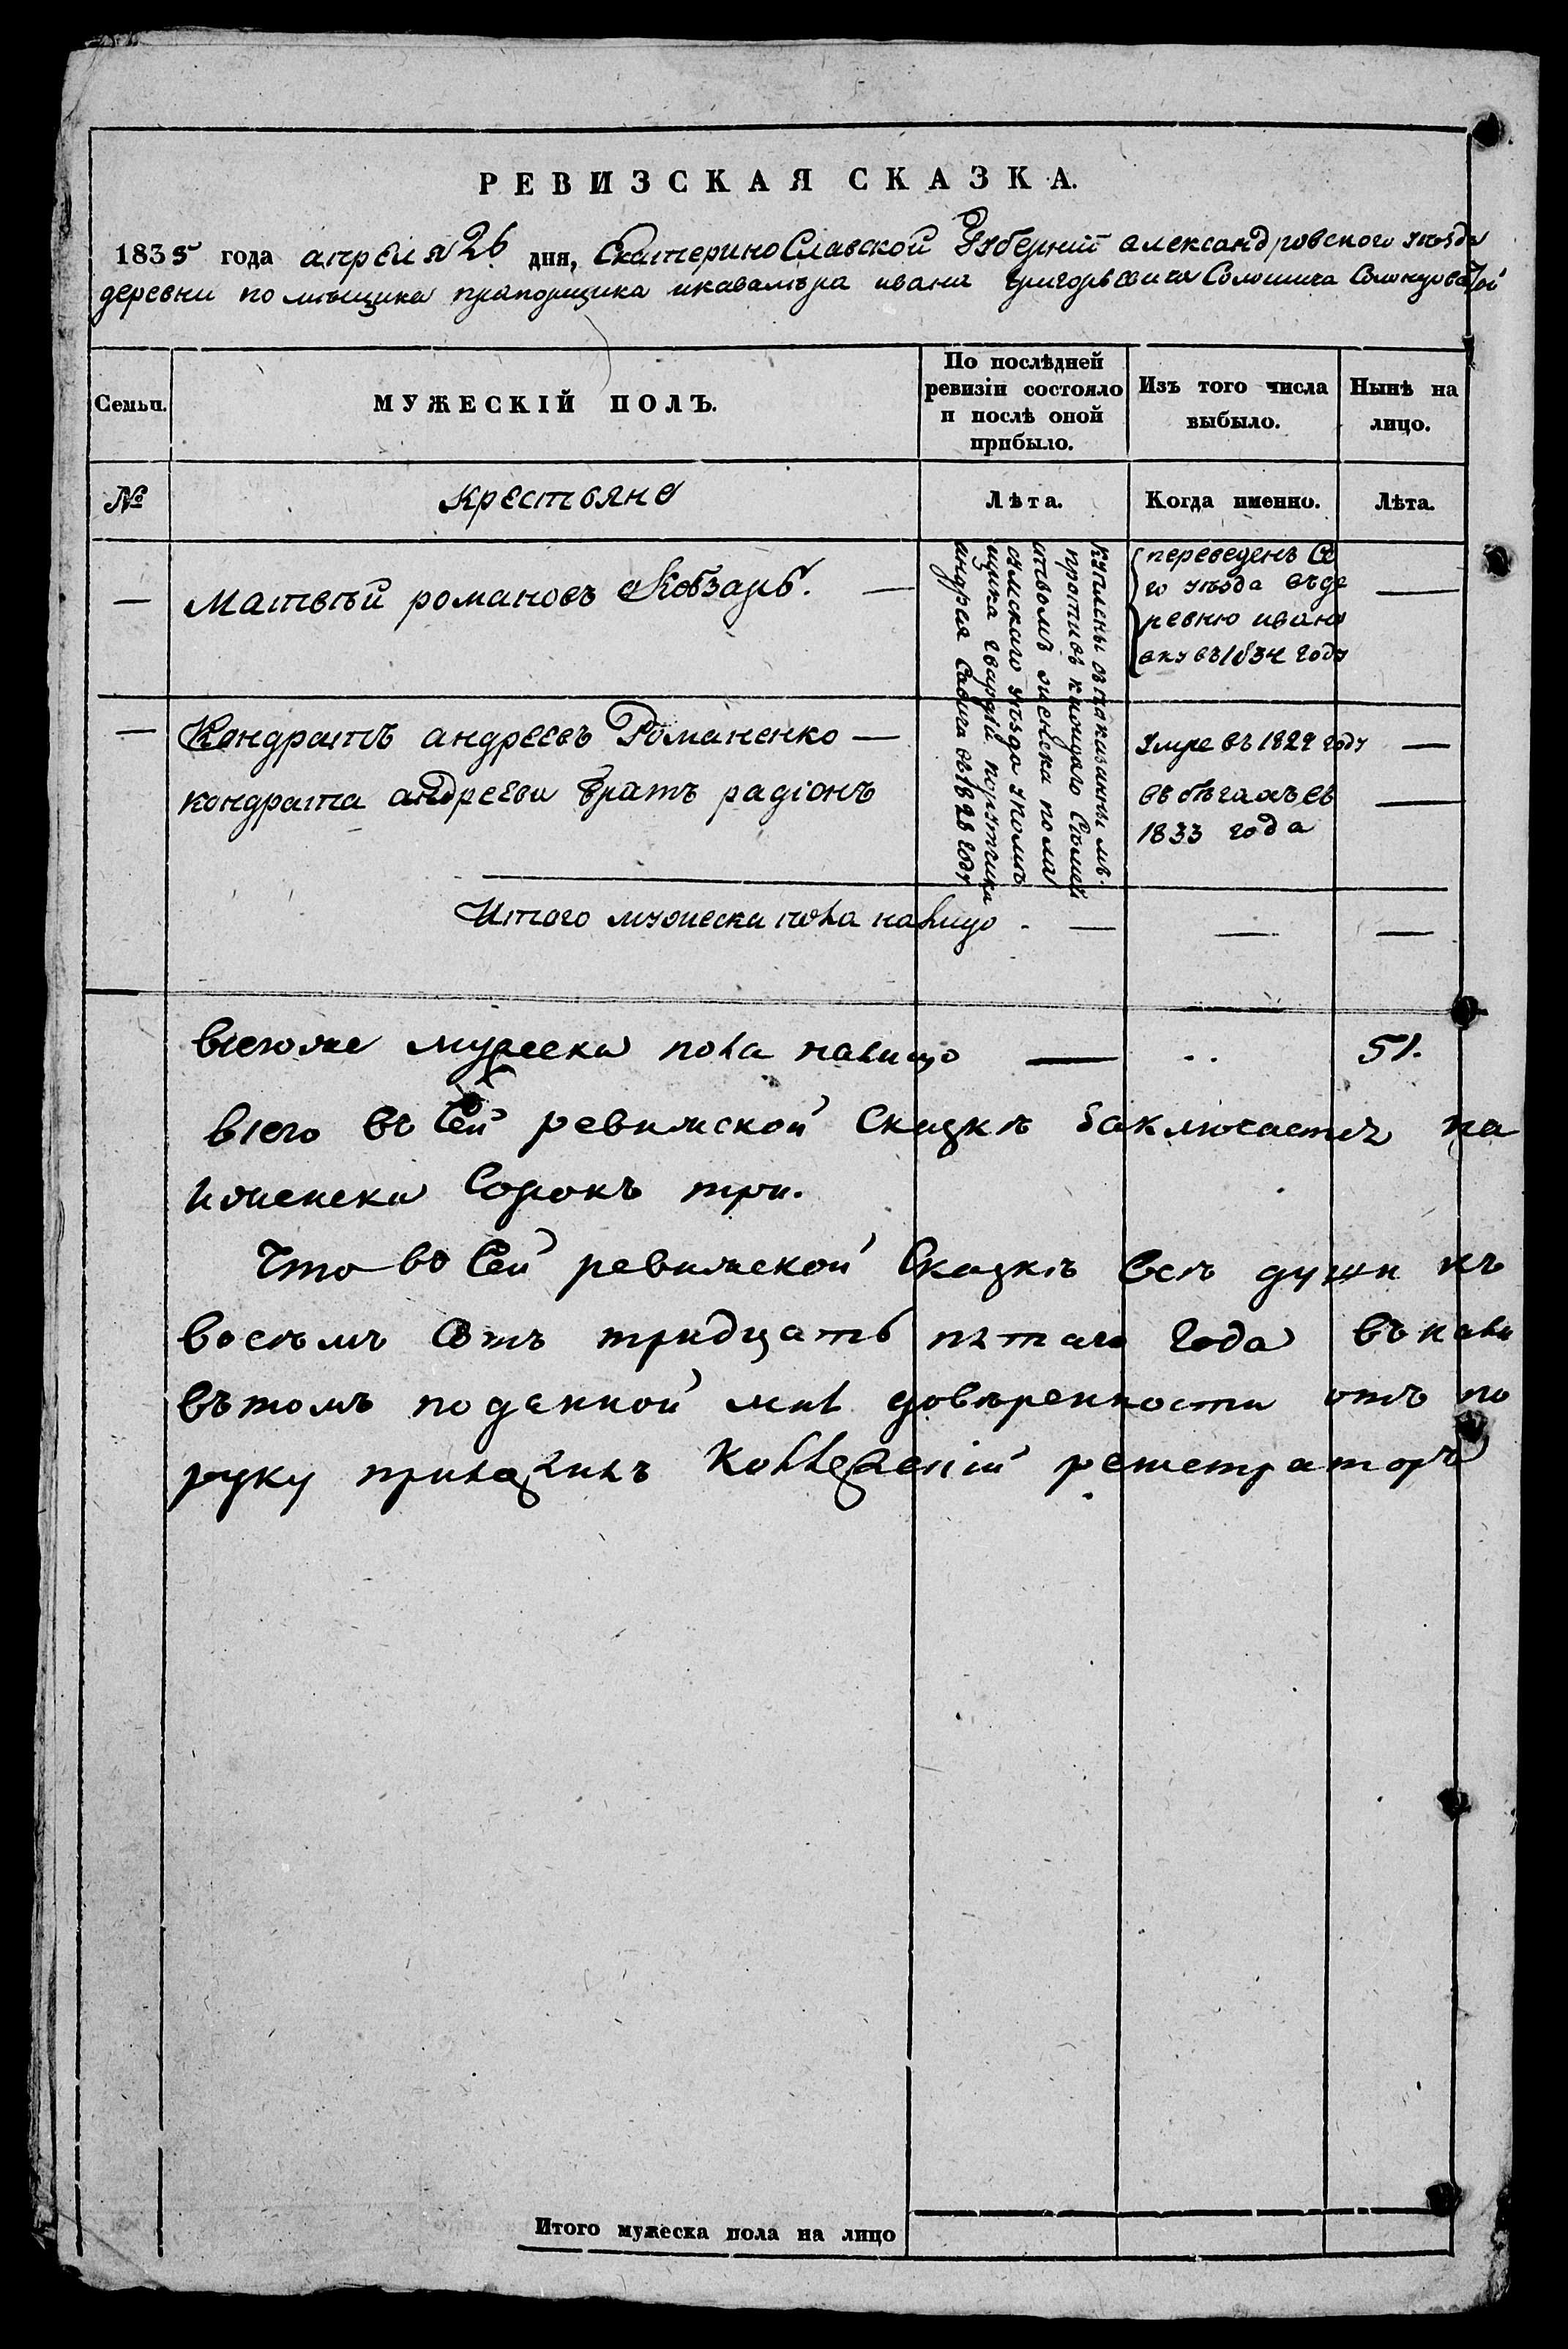 РЕВИЗСКАЯ СКАЗКА.
1835 года апреля 26 дня, Екатеринославской Губерніи александровского уѣзда
деревни помѣщика прапорщика икавалѣра ивана Григорьевича
Семьи.
МУЖЕСКІЙ ПОЛЪ.
По послѣдней
ревизіи состояло
и послѣ оной
прибыло.
Изъ того числа
выбыло.
Нынѣ на
лицо.
№
крестьяне
Лѣта.
Когда именно.
Лѣта.
— Матвѣй романовъ Кобзарь. —
переведенъ Се
го уѣзда въде
ревню ивано
вку въ1834 году
—
— Кондратъ андреевъ Романенко —
Умре въ 1829 году —
кондрата андреева братъ радіонъ
въ бѣгахъ съ
1833 года
—
уѣзда
андрея Савича въ 1828 году
Итого мужеска пола налицо . — — —
всегоже мужеска пола налицо — .. 51.
всего въ Сей ревижской Сказкѣ Заключается на
иженска Сорокъ три.
Что во Сей ревижской Сказкѣ всѣ души къ
восемъ Сотъ тридцать пятаго года въ нали
въ томъ поданной мнѣ довѣренности отъ по
руку приложилъ Коллежскій регистраторъ
Итого мужеска пола на лицо